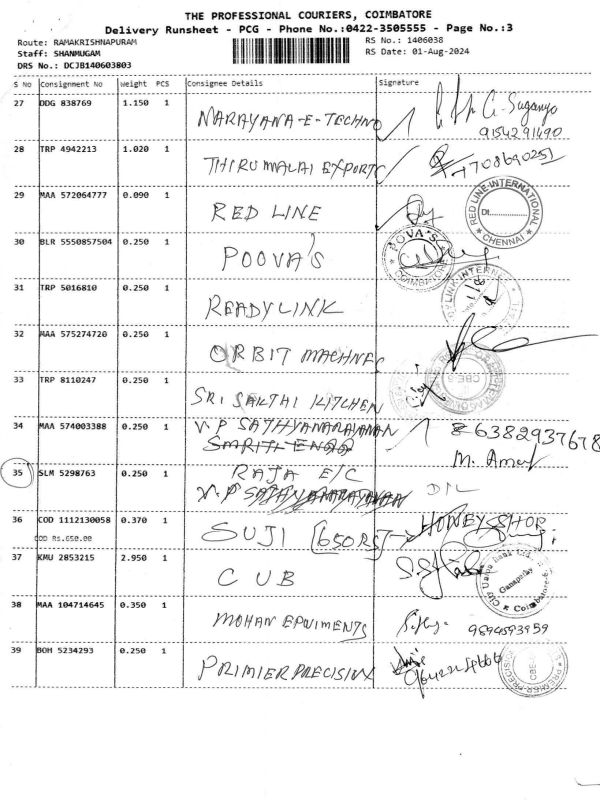 THE PROFESSIONAL COURIERS, COIMBATORE
Delivery Runsheet - PCG - Phone No.:0422-3505555 - Page No.:3
Route: RAMAKRISHNAPURAM RS No.: 1406038
Staff: SHANMUGAM RS Date: 01-Aug-2024
DRS No.: DCJB140603803
S No Consignment No Weight PCS Consignee Details Signature
27 DDG 838769 1.150 1 NARAYANA-E-TECHNO G. Suganya
9154291490
28 TRP 4942213 1.020 1 THIRUMALAI EXPORTS 7708690251
29 MAA 572064777 0.090 1 RED LINE RED LINE INTERNATIONAL Dt. CHENNAI
30 BLR 5550857504 0.250 1 POOVA'S POVA'S COIMBATORE
31 TRP 5016810 0.250 1 READYLINK
32 MAA 575274720 0.250 1 ORBIT MACHNES
33 TRP 8110247 0.250 1 SRI SAKTHI KITCHEN CBE-6
34 MAA 574003388 0.250 1 V.P SATHYANARAYANAN 6382937678
SMRITI ENGG
35 SLM 5298763 0.250 1 RAJA E/C D/L
V.P SATHYANARAYANAN
36 COD 1112130058 0.370 1 SUJI [650RS] HONEY SHOP
COD Rs.650.00
37 KMU 2853215 2.950 1 CUB City Union Bank Ltd. Ganapathy Coimbatore-6
38 MAA 104714645 0.350 1 MOHAN EPUIMENTS 9894593959
39 BOH 5234293 0.250 1 PRIMIER PRECISION PREMIER PRECISION